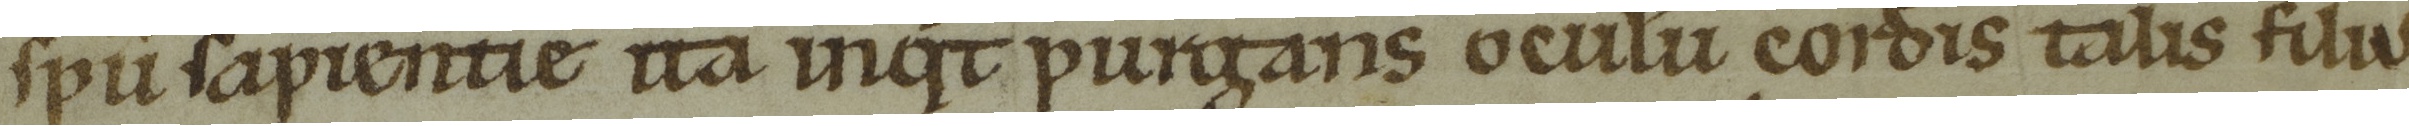 spu sapientie ita inqt purgans oculu cordis talis filiu